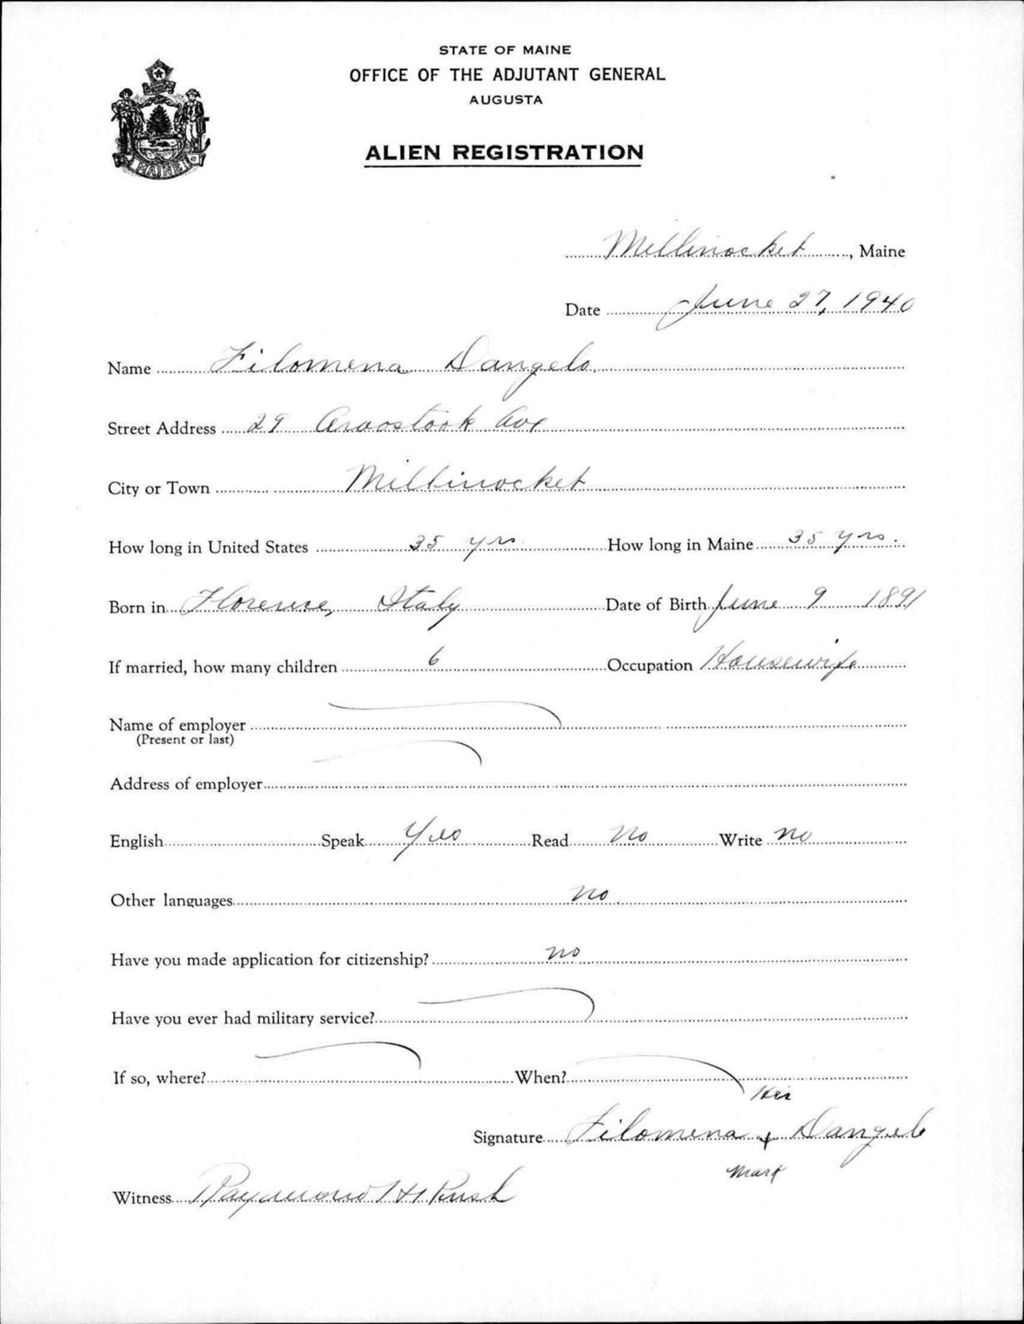 STATE OF MAINE
OFFICE OF THE ADJUTANT GENERAL
AUGUSTA
ALIEN REGISTRATION
MAINE
Millinocket, Maine
Date June 27, 1940
Name Filomena Dangelo
Street Address 29 Aroostook Ave
City or Town Millinocket
How long in United States 35 yrs How long in Maine 35 yrs.
Born in Florence, Italy Date of Birth June 9 1891
If married, how many children 6 Occupation Housewife
Name of employer
(Present or last)
Address of employer
English Speak Yes Read No Write No
Other languages no
Have you made application for citizenship? no
Have you ever had military service?
If so, where? When?
Her
Signature Filomena x Dangelo
mark
Witness Raymond H Rush